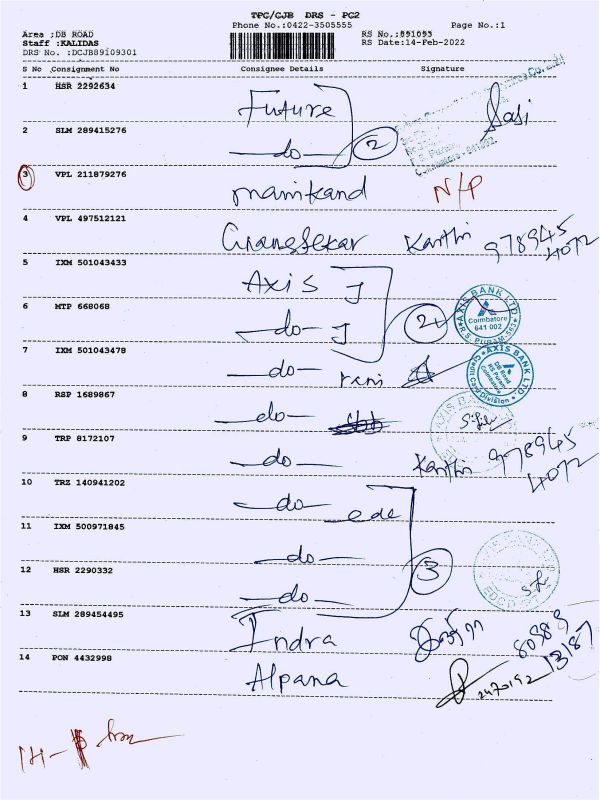 TPC/CJB DRS - PC2
Phone No.:0422-3505555 Page No.:1
Area :DB ROAD RS No.:891093
Staff :KALIDAS RS Date:14-Feb-2022
DRS No. :DCJB89109301
S No Consignment No Consignee Details Signature
1 HSR 2292634 Future
2 SLM 289415276 do 2
3 VPL 211879276 manikand N/P
4 VPL 497512121 Kanthi 978945
4072
5 IXM 501043433 Axis J
6 MTP 668068 do J 2
AXIS BANK LTD
Coimbatore
641 002
7 IXM 501043478 do rani
AXIS BANK LTD
DB Road
RS Puram
Coimbatore
8 RSP 1689867 do
AXIS BANK
9 TRP 8172107 do Kanthi 978945
4072
10 TRZ 140941202 do
11 IXM 500971845 do 3
12 HSR 2290332 do
13 SLM 289454495 Indra
14 PON 4432998 Alpana